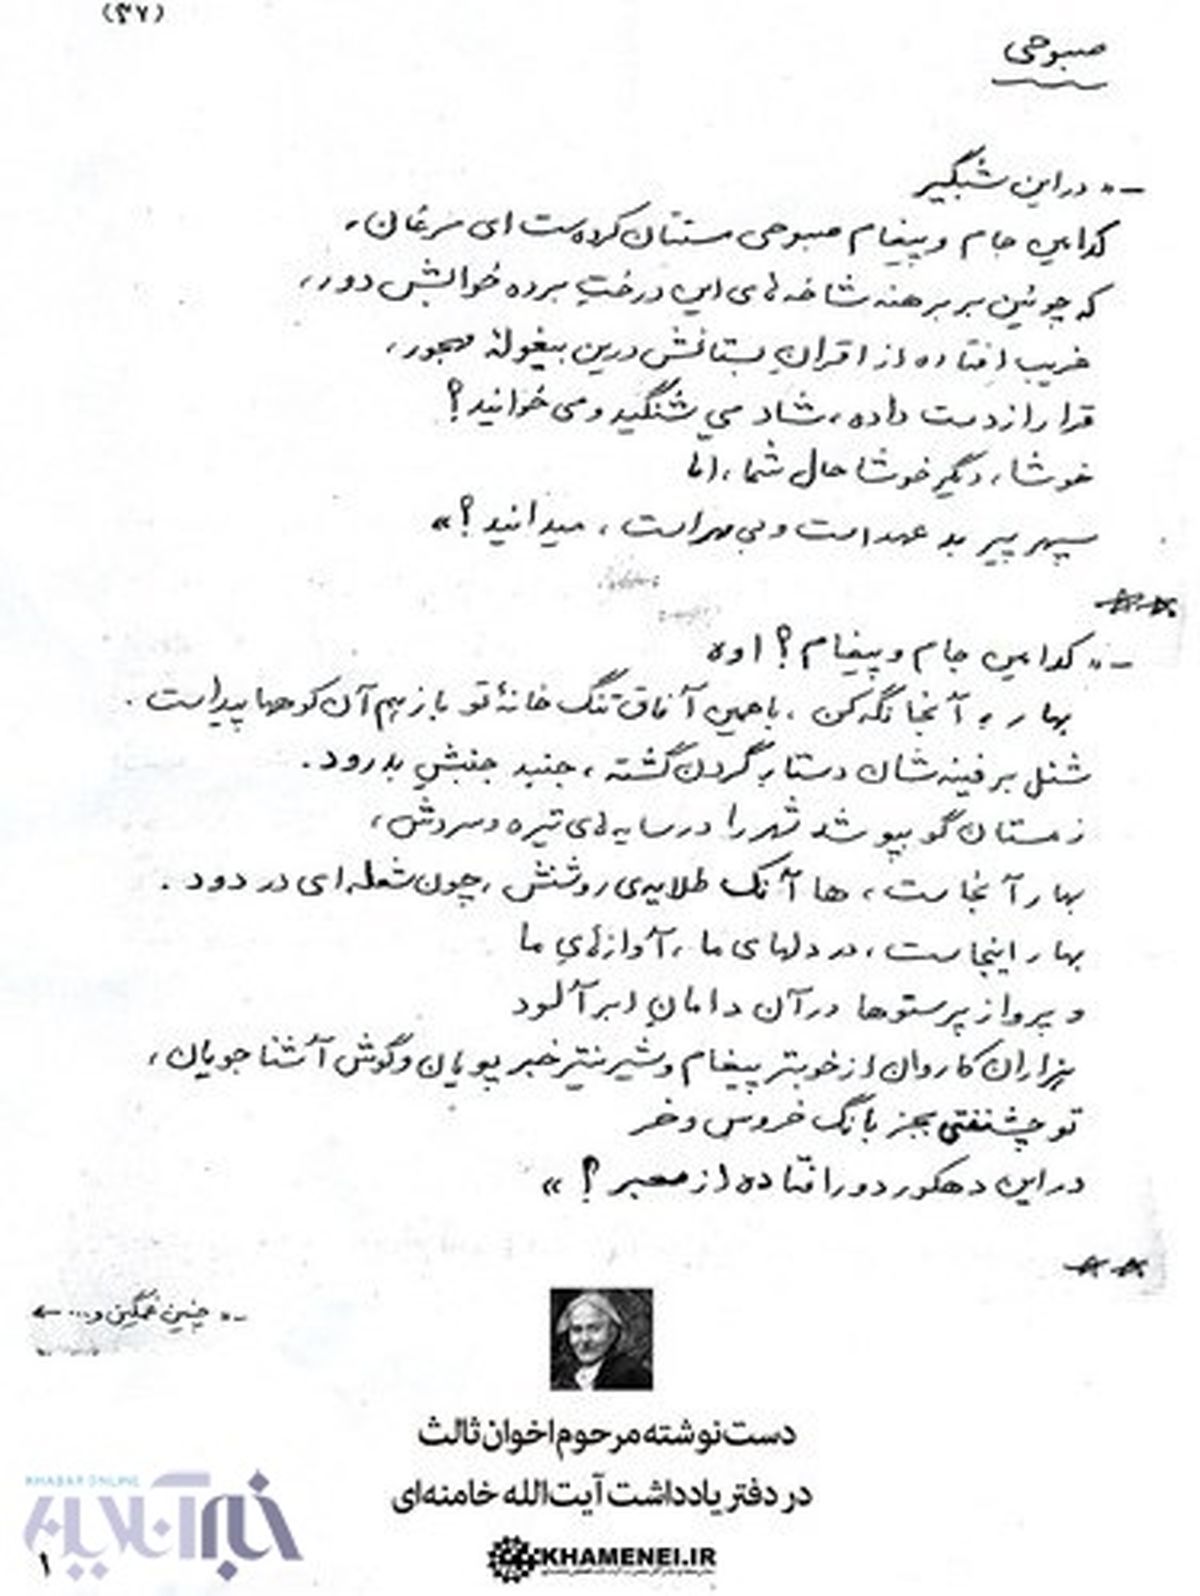 (۳۷)
صبوحی
- «در این شبگیر
کدامین جام و پیغام صبوحی مستتان کرده‌ست ای مرغان،
که چونین بر برهنه شاخه‌های این درختِ برده خوابش دور،
غریب افتاده از اقرانِ بستانش درین بیغولهٔ مهجور،
قرار از دست داده، شاد می شنگید و می خوانید؟
خوشا، دیگر خوشا حال شما، امّا
سپهر پیر بد عهد است و بی مهر است، میدانید؟»
**
- «کدامین جام و پیغام؟ اوه
بهار، به آنجا نگه کن، با همین آفاق تنگ خانهٔ تو باز هم آن کوهها پیداست.
شنل برفینه‌شان دستار گردن گشته، جنبد جنبش بدرود.
زمستان گو بپوشد شهر را در سایه‌های تیره و سردش،
بهار آنجاست، ها آنک طلایه‌ی روشنش، چون شعله‌ای در دود.
بهار اینجاست، در دلهای ما، آوازهای ما
و پرواز پرستوها در آن دامانِ ابرآلود
هزاران کاروان از خوبتر پیغام و شیرنتیر خبر پویان و گوش آشنا جویان،
تو چشنفتی بجز بانگ خروس و خر
در این دهکور دور افتاده از معبر؟»
**
- «چنین غمگین و... ←
دست‌نوشته مرحوم اخوان ثالث
در دفتر یادداشت آیت‌الله خامنه‌ای
KHAMENEI.IR
KHABAR ONLINE
خبرآنلاین
۱